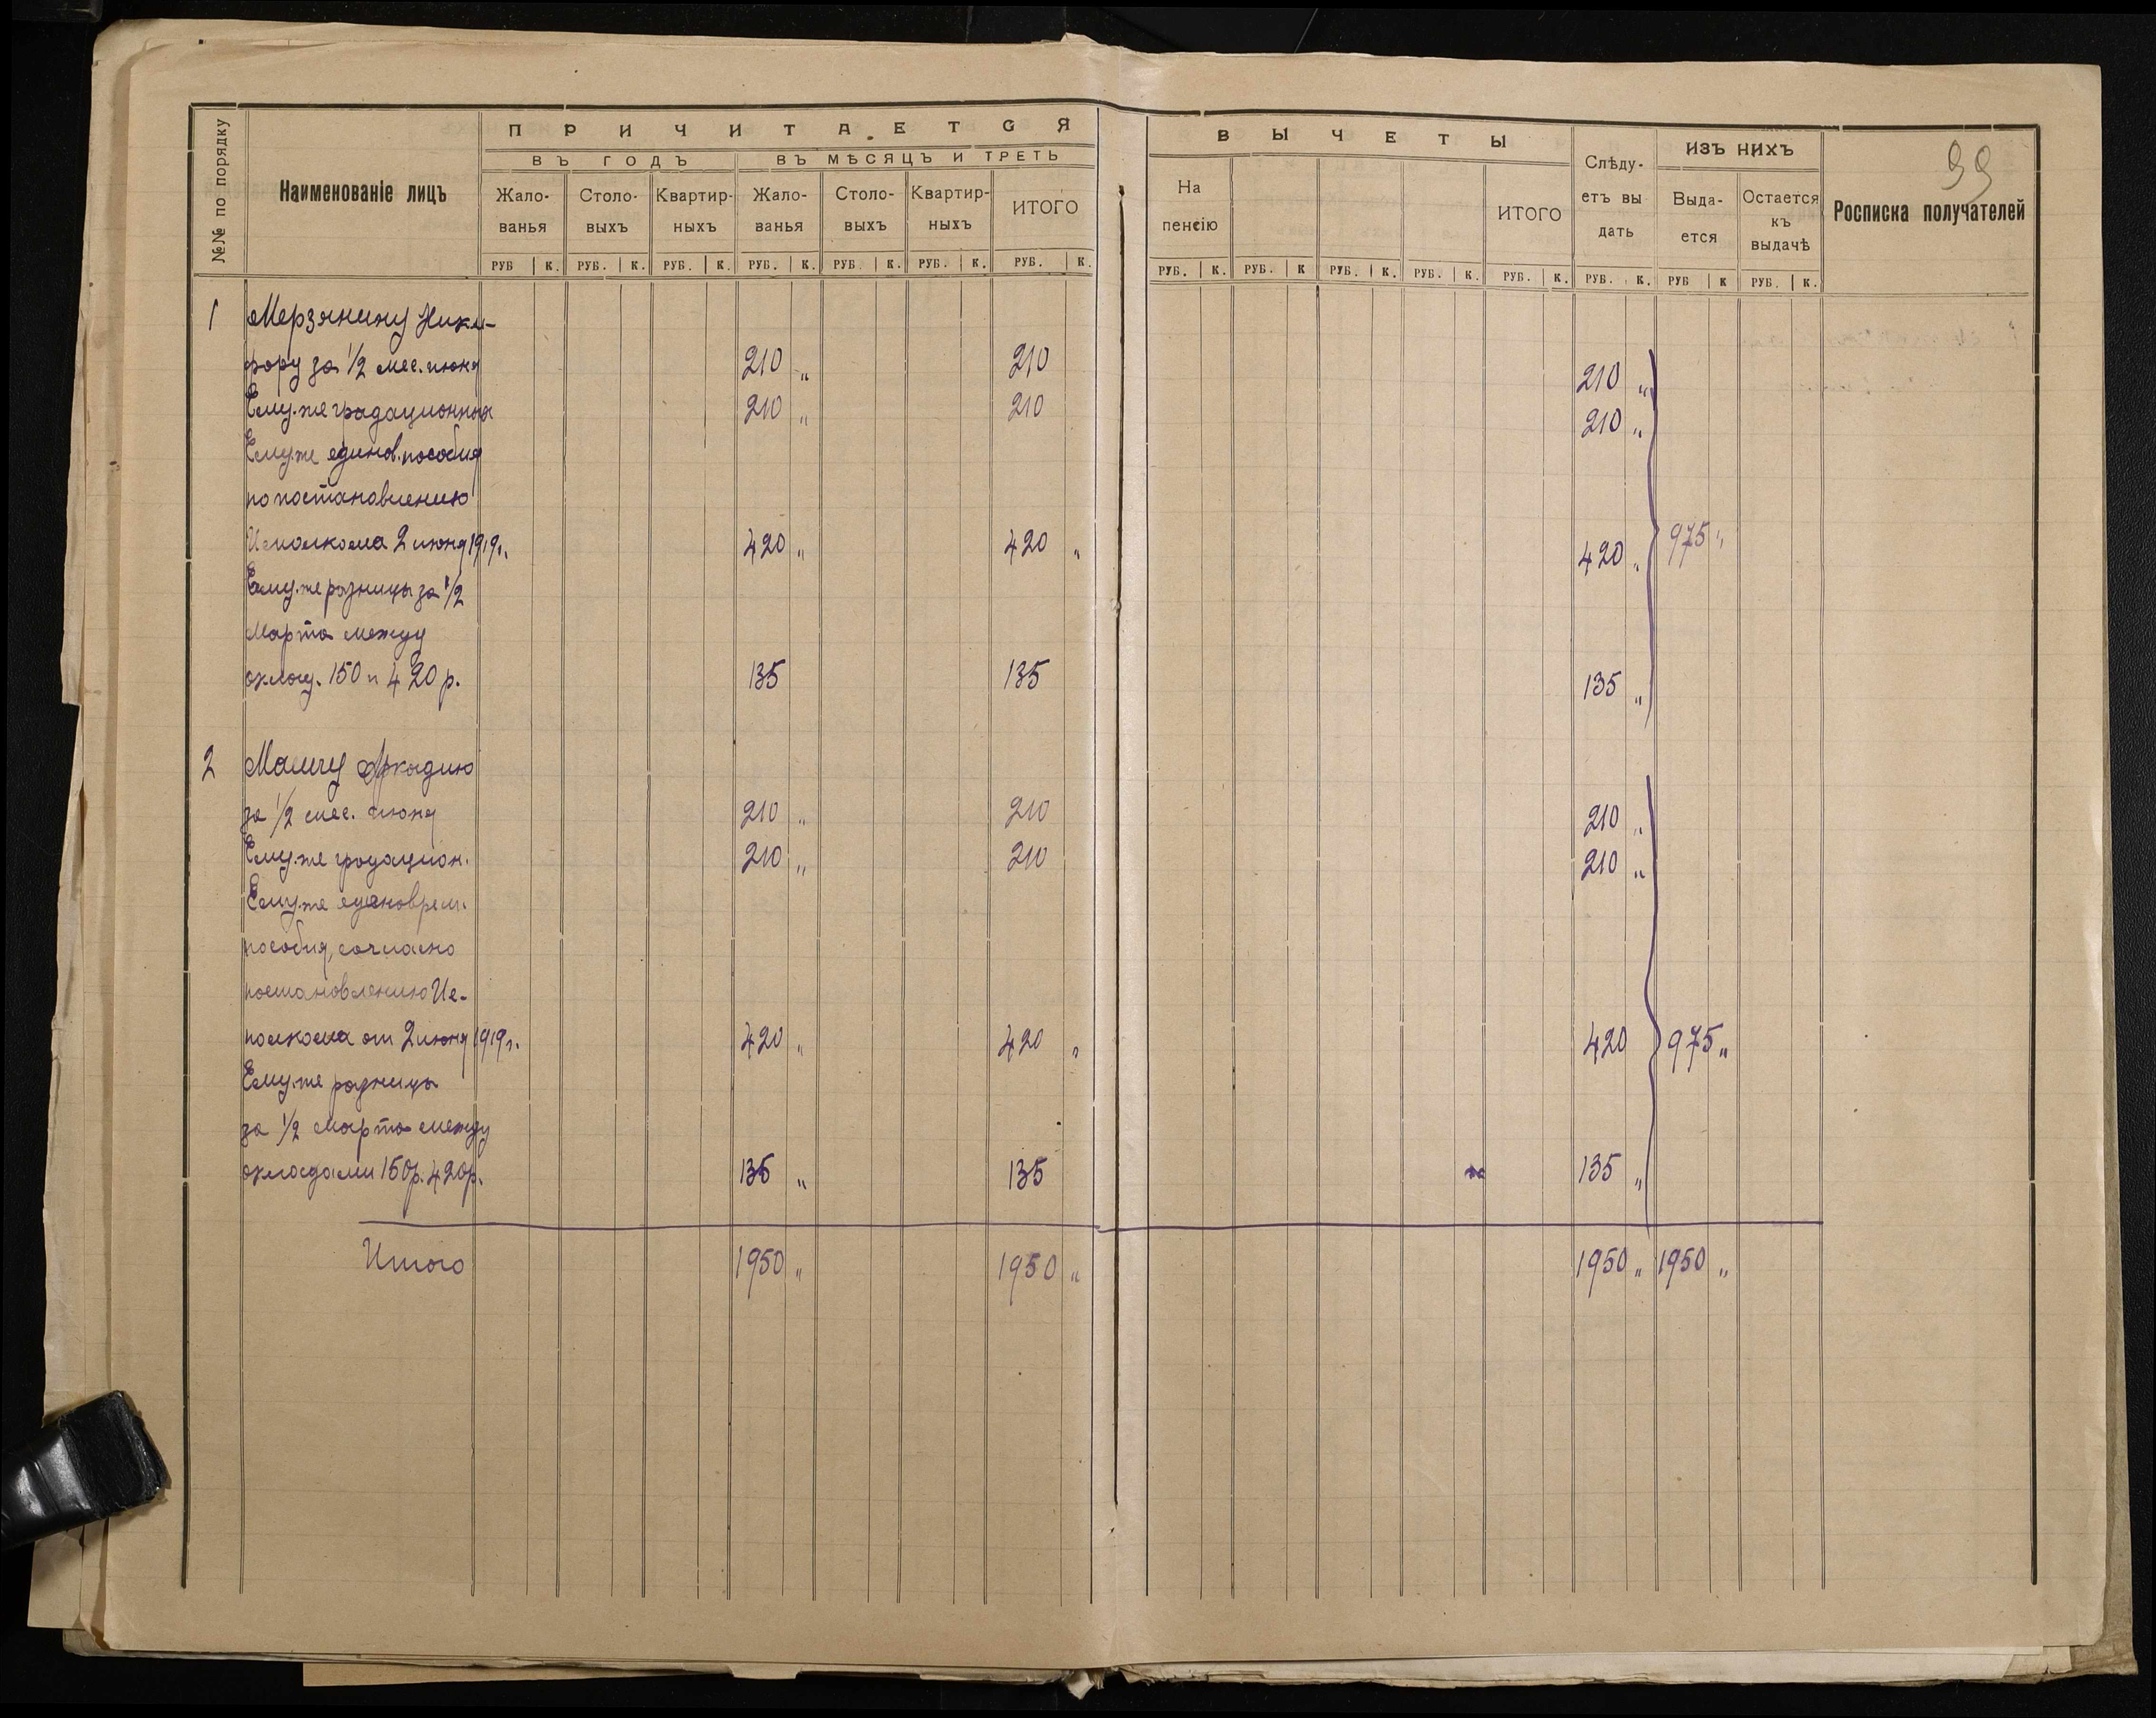 №№ по порядку
Наименованіе лицъ
ПРИЧИТАЕТСЯ
ВЪ ГОДЪ
ВЪ МѢСЯЦЪ И ТРЕТЬ
Жало-
ванья
Столо-
выхъ
Квартир-
ныхъ
Жало-
ванья
Столо-
выхъ
Квартир-
ныхъ
ИТОГО
РУБ К. РУБ. К. РУБ. К. РУБ. К. РУБ. К. РУБ. К. РУБ. К.
ВЫЧЕТЫ
На
пенсію
ИТОГО
Слѣду-
етъ вы
дать
ИЗЪ НИХЪ
Выда-
ется
Остается
къ
выдачѣ
Росписка получателей
99
РУБ. К. РУБ. К РУБ. К. РУБ. К. РУБ. К. РУБ. К. РУБ К РУБ. К.
1 Мерзянину Ники-
фору за 1/2 мес. июня 210 „ 210 210 „
Ему же градационных 210 „ 210 210 „
Ему же единов. пособия
по постановлению
Исполкома 2 июня 1919г. 420 „ 420 „ 420 „ 975 „
Ему же разницы за 1/2
Марта между
оклад. 150 и 420 р. 135 135 135 „
2 Маличу Аркадию
за 1/2 мес. июня 210 „ 210 210 „
Ему же градацион. 210 „ 210 210 „
Ему же единоврем.
пособия, согласно
постановлению Ис-
полкома от 2 июня 1919г. 420 „ 420 „ 420 975 „
Ему же разницы
за 1/2 Марта между
окладами 150р. 420р. 135 „ 135 135 „
Итого 1950 „ 1950 „ 1950 „ 1950 „